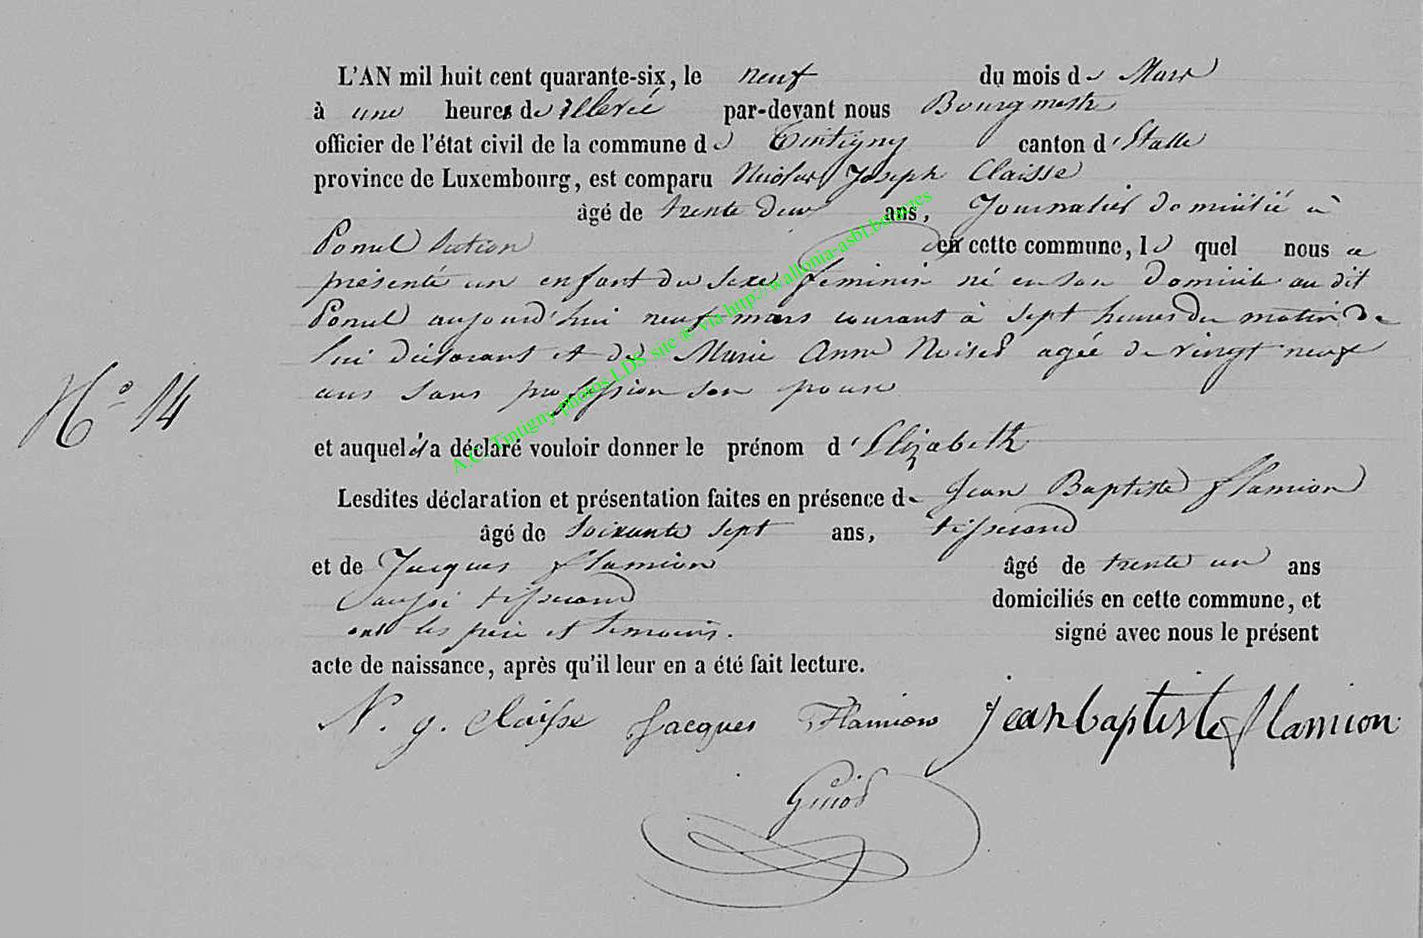 L'AN mil huit cent quarante-six, le neuf du mois de Mars
à une heure de relevée par-devant nous Bourgmestre
officier de l'état civil de la commune de Tintigny canton d'Etalle
province de Luxembourg, est comparu Nicolas Joseph Claisse
âgé de trente deux ans, Journalier domicilié à
Ponsel section en cette commune, le quel nous a
présenté un enfant du sexe féminin né en son domicile au dit
Ponsel aujourd'hui neuf mars courant à sept heures du matin de
lui déclarant et de Marie Anne Noisel agée de vingt neuf
ans sans profession son epouse
N° 14
et auquel il a déclaré vouloir donner le prénom d'Elizabeth
Lesdites déclaration et présentation faites en présence de Jean Baptiste flamion
âgé de soixante sept ans, tisserand
et de Jacques flamion âgé de trente un ans
aussi tisserand domiciliés en cette commune, et
ont les père et temoins. signé avec nous le présent
acte de naissance, après qu'il leur en a été fait lecture.
N. j. Claisse Jacques Flamion jean baptiste flamion
A.C. Tintigny photos LDS site © via http://wallonia-asbl.be/actes